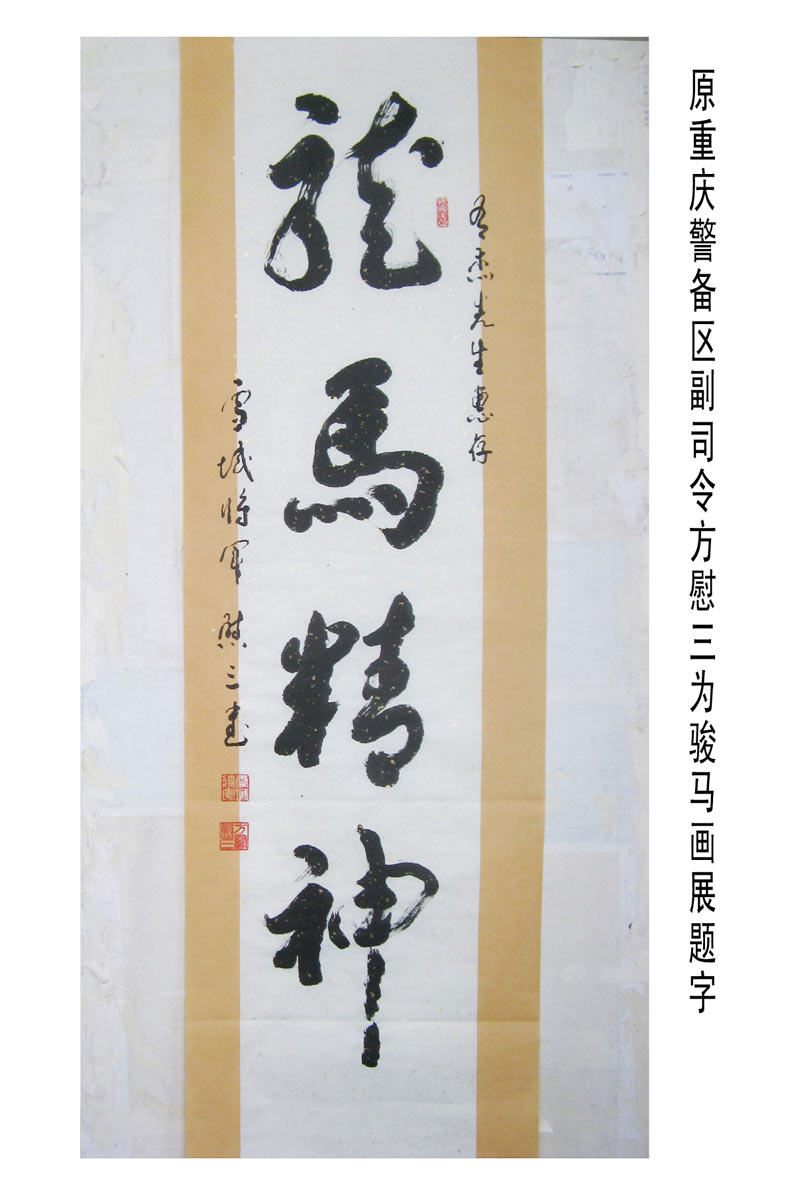 原重庆警备区副司令方慰三为骏马画展题字
杰先生惠存
龍馬精神
雪域将军 慰三书
方慰三